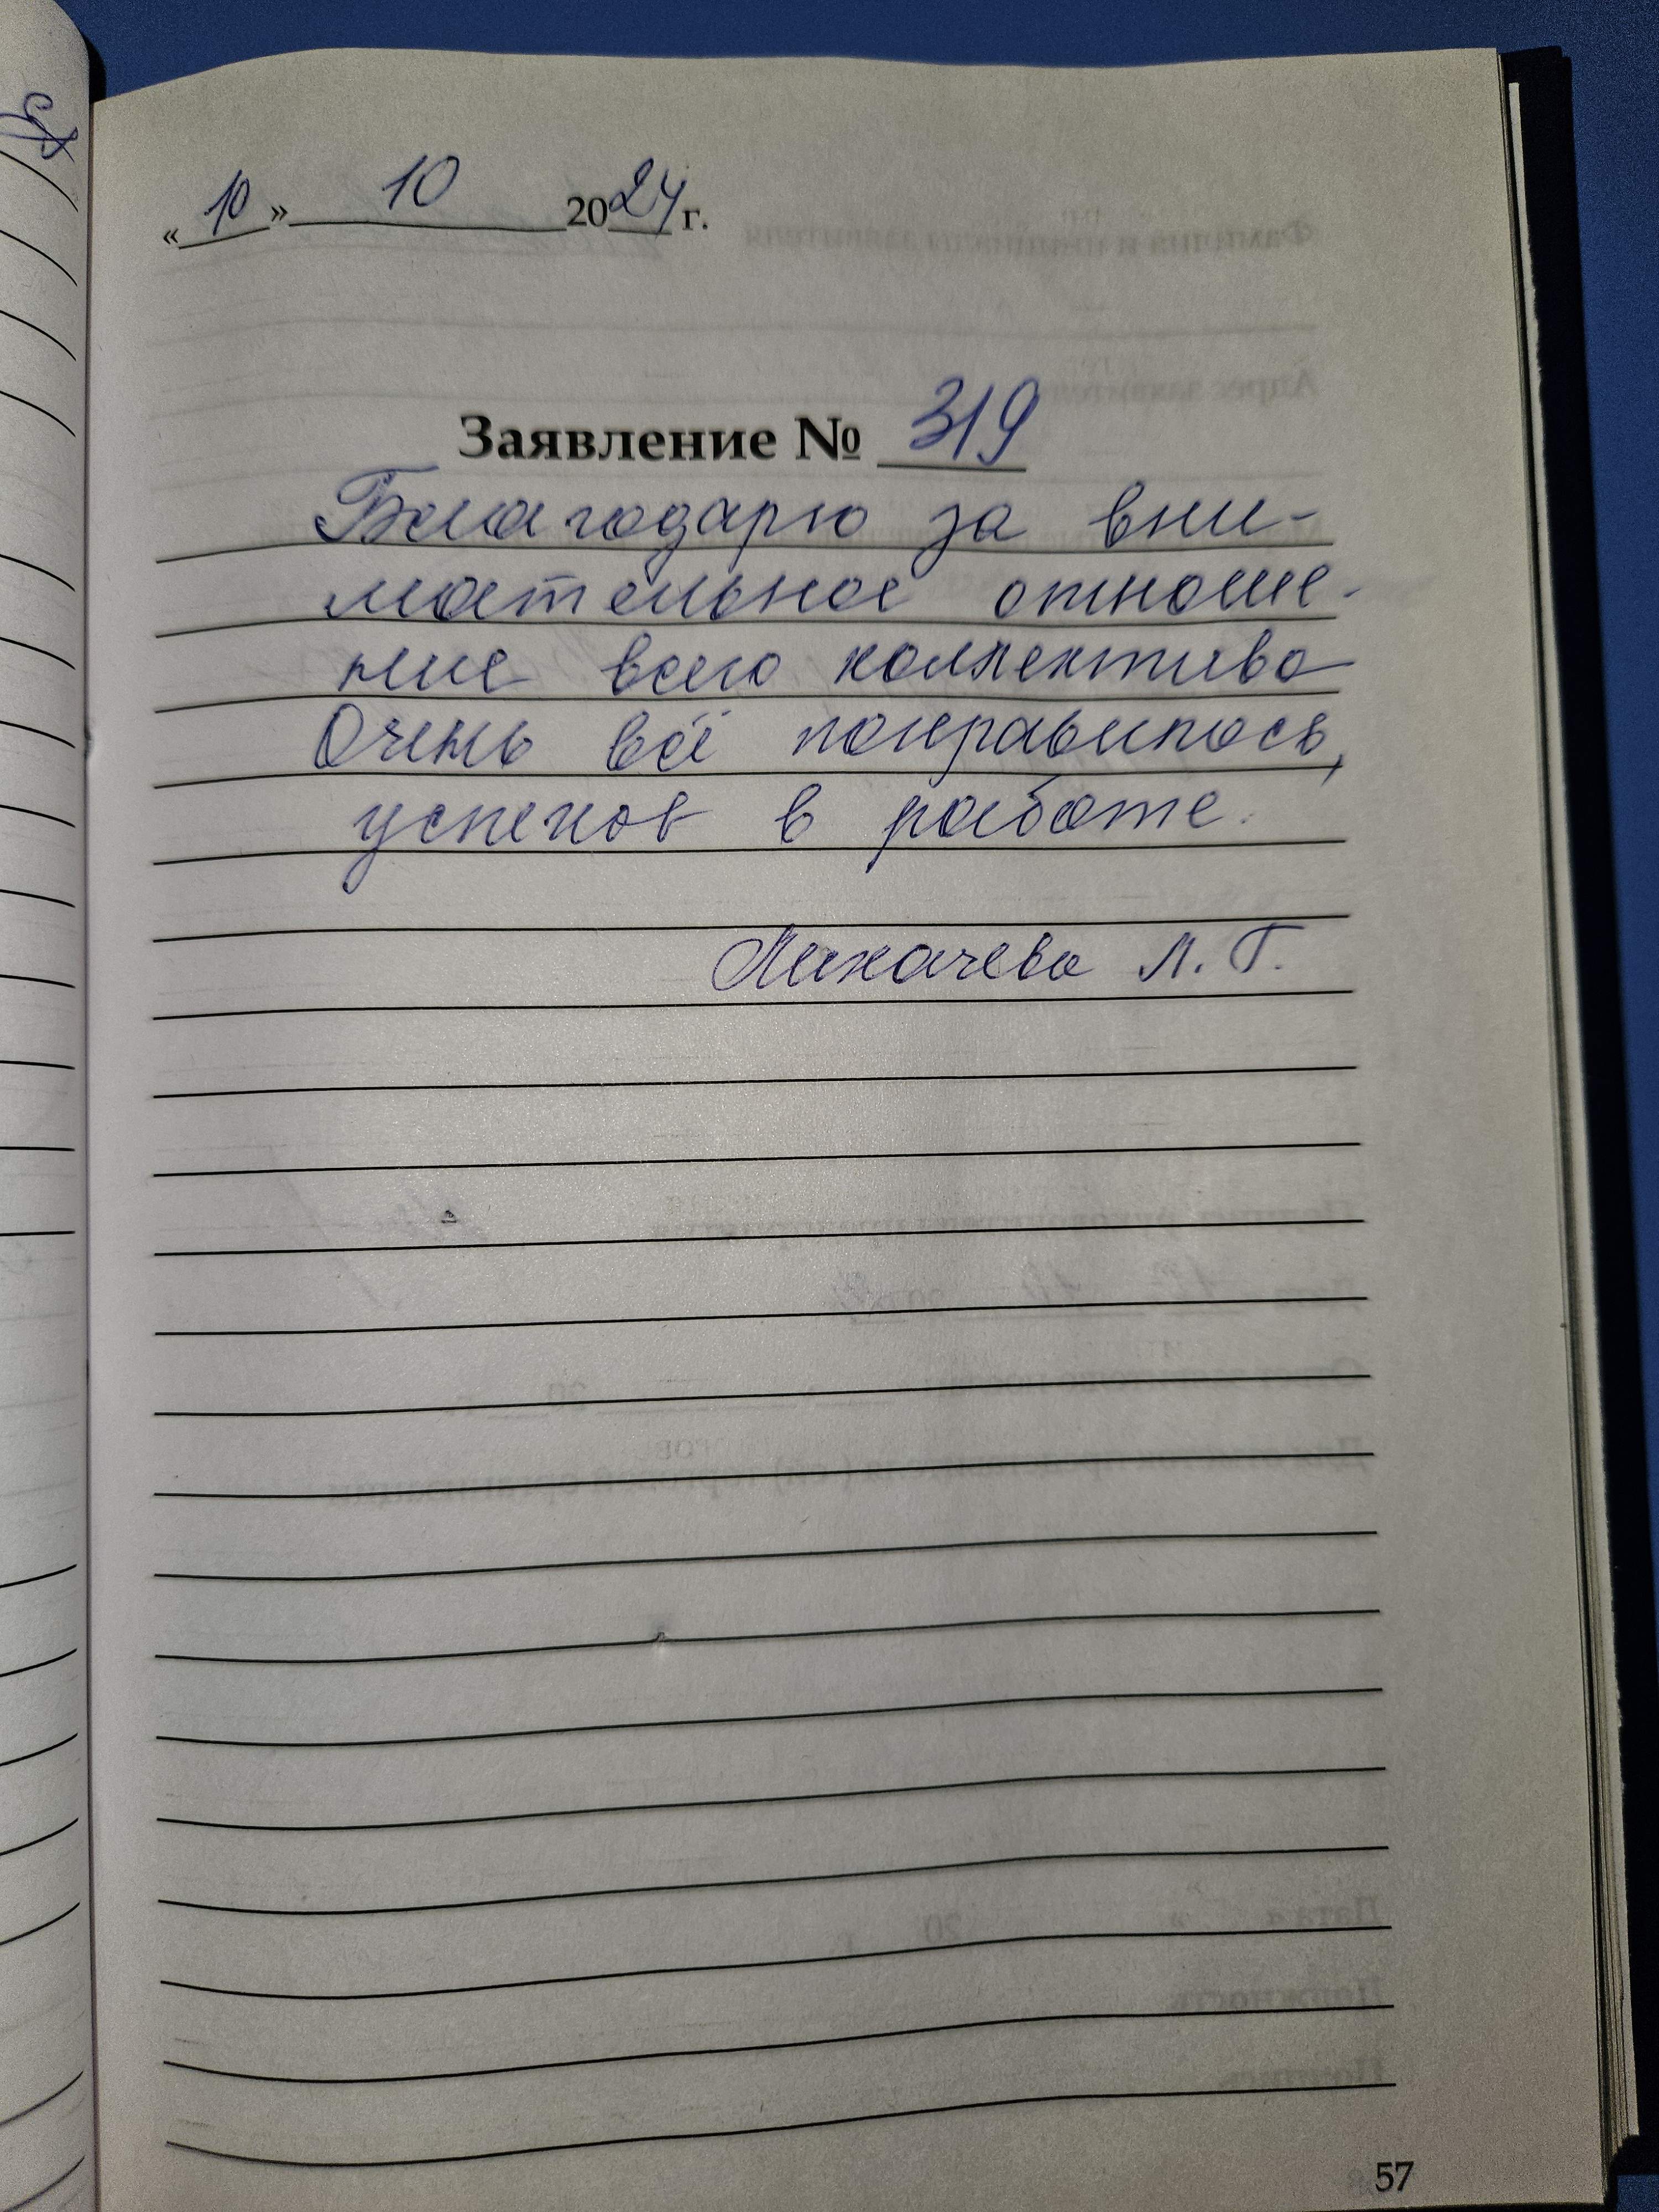 «10» 10 2024 г.
Заявление № 319
Благодарю за вни-
мательное отноше-
ние всего коллектива
Очень всё понравилось,
успехов в работе.
Лихачева Л. Г.
57